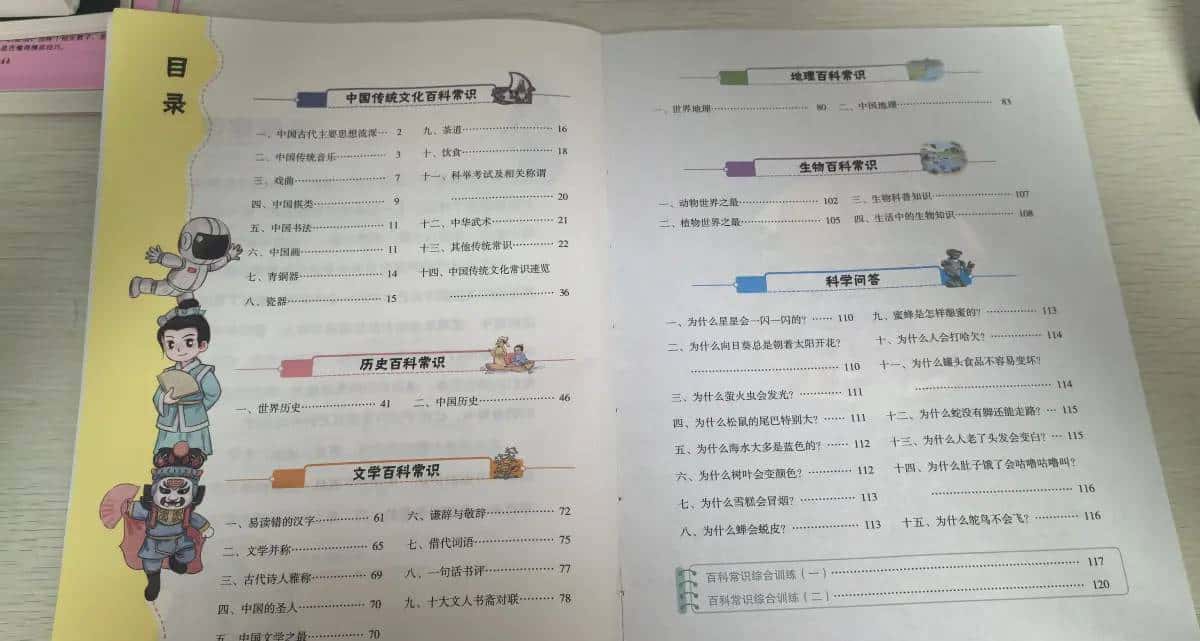 目录
中国传统文化百科常识
一、中国古代主要思想流派… 2
二、中国传统音乐…………… 3
三、戏曲…………………… 7
四、中国棋类……………… 9
五、中国书法……………… 11
六、中国画………………… 11
七、青铜器………………… 14
八、瓷器…………………… 15
九、茶道…………………… 16
十、饮食…………………… 18
十一、科举考试及相关称谓
…………………… 20
十二、中华武术…………… 21
十三、其他传统常识……… 22
十四、中国传统文化常识速览
…………………… 36
历史百科常识
一、世界历史……………… 41
二、中国历史……………… 46
文学百科常识
一、易读错的汉字………… 61
二、文学并称……………… 65
三、古代诗人雅称………… 69
四、中国的圣人…………… 70
五、中国文学之最………… 70
六、谦辞与敬辞…………… 72
七、借代词语……………… 75
八、一句话书评…………… 77
九、十大文人书斋对联…… 78
地理百科常识
一、世界地理…………………… 80
二、中国地理…………………… 83
生物百科常识
一、动物世界之最……………… 102
二、植物世界之最……………… 105
三、生物科普知识……………… 107
四、生活中的生物知识………… 108
科学问答
一、为什么星星会一闪一闪的?…… 110
二、为什么向日葵总是朝着太阳开花?
………………………………… 110
三、为什么萤火虫会发光?………… 111
四、为什么松鼠的尾巴特别大?…… 111
五、为什么海水大多是蓝色的?…… 112
六、为什么树叶会变颜色?………… 112
七、为什么雪糕会冒烟?…………… 113
八、为什么蝉会蜕皮?……………… 113
九、蜜蜂是怎样酿蜜的?…………… 113
十、为什么人会打哈欠?…………… 114
十一、为什么罐头食品不容易变坏?
………………………………… 114
十二、为什么蛇没有脚还能走路?… 115
十三、为什么人老了头发会变白?… 115
十四、为什么肚子饿了会咕噜咕噜叫?
………………………………… 116
十五、为什么鸵鸟不会飞?………… 116
百科常识综合训练(一)…………………………………… 117
百科常识综合训练(二)…………………………………… 120